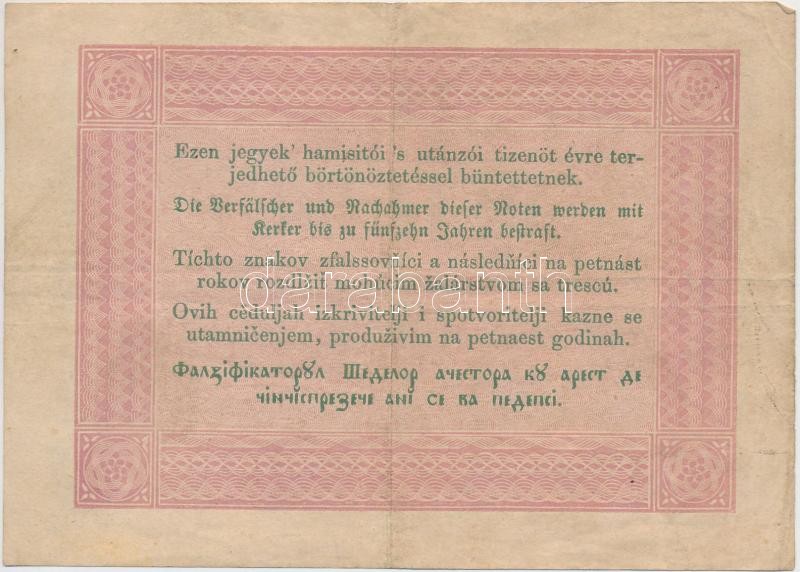 Ezen jegyek' hamisitói 's utánzói tizenöt évre ter-
jedhető börtönöztetéssel büntettetnek.
Die Verfälscher und Nachahmer dieser Noten werden mit
Kerker bis zu fünfzehn Jahren bestraft.
Tíchto znakov zfalssovňíci a následňíci na petnást
rokov rozdlžiť mohúcim žalárstvom sa trescú.
darabanth
Ovih céduljah izkrivitelji i spotvoritelji kazne se
utamničenjem, produživim na petnaest godinah.
Фалзіфікаторꙋл Шеделор ачестора кꙋ арест де
чінчіспрезече ані се ва педепсі.